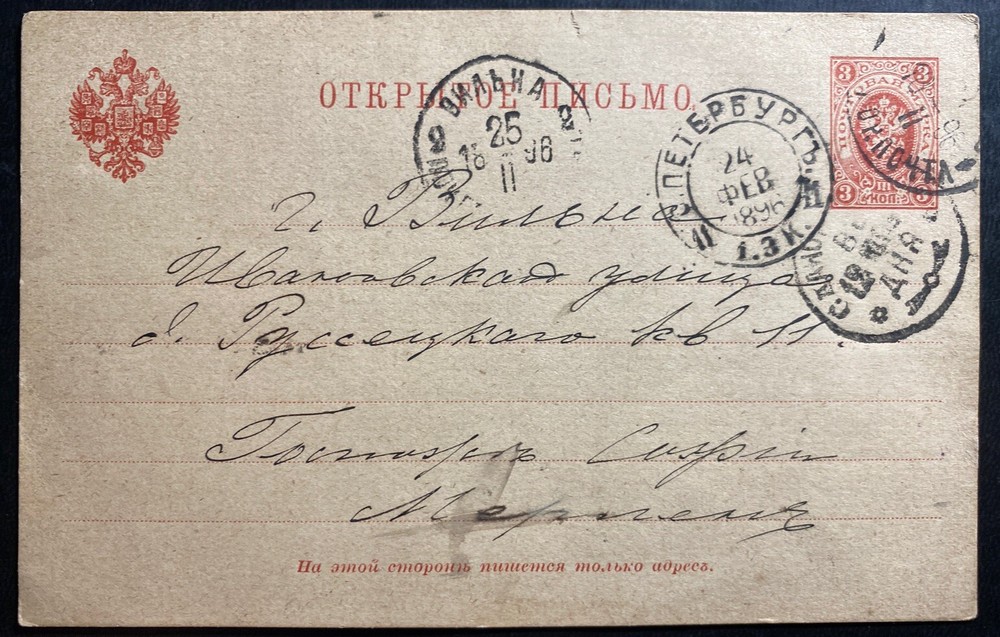 ОТКРЫТОЕ ПИСЬМО.
3 3
ПОЧТОВАЯ МАРКА
3 КОП. 3
ВИЛЬНА
25
18 96
II
С.ПЕТЕРБУРГЪ
24
ФЕВ
1896
II 1.Э К.
ДНЯ
г. Вильна
Ивановская улица
д. Руссецкаго кв 11.
Госпожѣ Софіи
На этой сторонѣ пишется только адресъ.